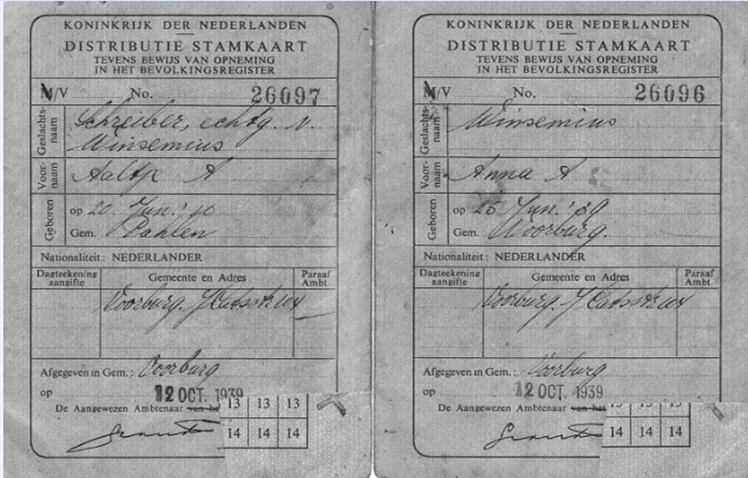 KONINKRIJK DER NEDERLANDEN
DISTRIBUTIE STAMKAART
TEVENS BEWIJS VAN OPNEMING
IN HET BEVOLKINGSREGISTER
M/V No. 26097
Geslachts-
naam
Schreiber, echtg. v.
Winsemius
Voor-
naam
Aaltje A
Geboren
op 20 Jun.' 10
Gem. Dahlen
Nationaliteit: NEDERLANDER
Dagteekening
aangifte
Gemeente en Adres
Paraaf
Ambt.
Voorburg.
Afgegeven in Gem.: Voorburg
op 12 OCT. 1939
De Aangewezen Ambtenaar van het
13 13 13
14 14 14
KONINKRIJK DER NEDERLANDEN
DISTRIBUTIE STAMKAART
TEVENS BEWIJS VAN OPNEMING
IN HET BEVOLKINGSREGISTER
M/V No. 26096
Geslachts-
naam
Winsemius
Voor-
naam
Anna A
Geboren
op 26 Jun.' 39
Gem. Voorburg.
Nationaliteit: NEDERLANDER
Dagteekening
aangifte
Gemeente en Adres
Paraaf
Ambt.
Voorburg.
Afgegeven in Gem.: Voorburg
op 12 OCT. 1939
De Aangewezen Ambtenaar van het
13 13 13
14 14 14